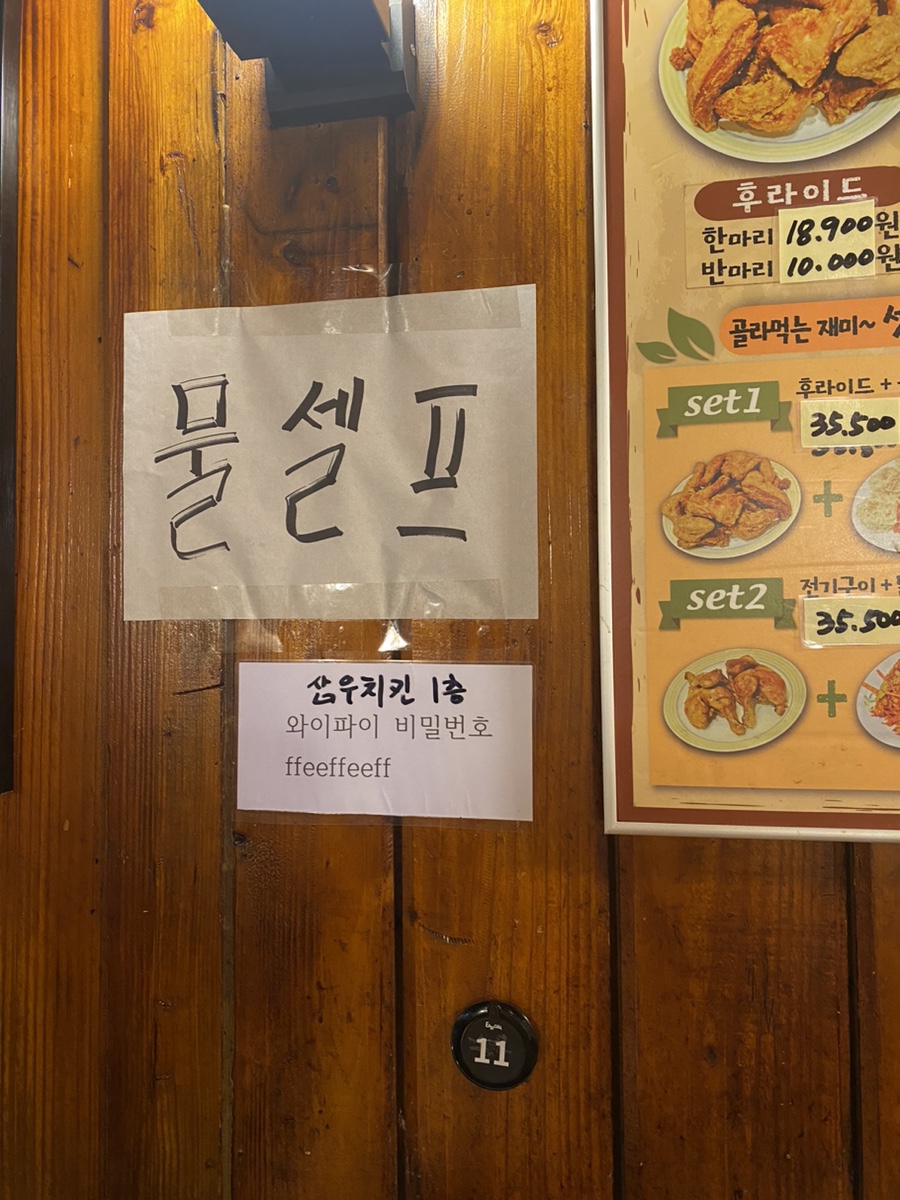 물셀프
삼우치킨 1층
와이파이 비밀번호
ffeeffeeff
11
후라이드
한마리 18.900원
반마리 10.000원
골라먹는 재미~
set1
후라이드 +
35.500
+
set2
전기구이 +
35.500
+